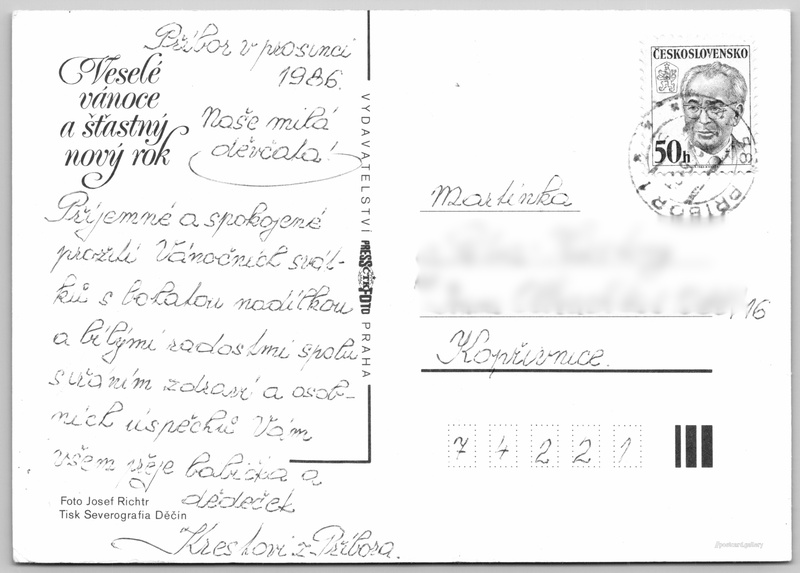 Příbor v prosinci
1986.
Veselé
vánoce
a šťastný
nový rok
Naše milá
děvčata!
Příjemné a spokojené
prožití Vánočních svát-
ků s bohatou nadílkou
a bílými radostmi spolu
s přáním zdraví a osob-
ních úspěchů Vám
všem přeje babička a
dědeček
Kreslovi z Příbora.
Foto Josef Richtr
Tisk Severografia Děčín
VYDAVATELSTVÍ PRESSFOTO PRAHA
ČTK
ČESKOSLOVENSKO
50h
PŘÍBOR 1
Martinka
16
Kopřivnice.
74221